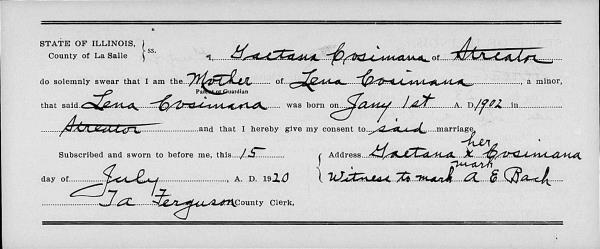 STATE OF ILLINOIS, } ss.
County of La Salle
I, Gaetana Cosimana of Streator
do solemnly swear that I am the Mother of Lena Cosimana, a minor,
Parent or Guardian
that said Lena Cosimana was born on Jany 1st A. D. 1902 in
Streator and that I hereby give my consent to said marriage.
Subscribed and sworn to before me, this 15
day of July, A. D. 1920
Ta Ferguson County Clerk,
Address Gaetana her x mark Cosimana
Witness to mark A E Bach